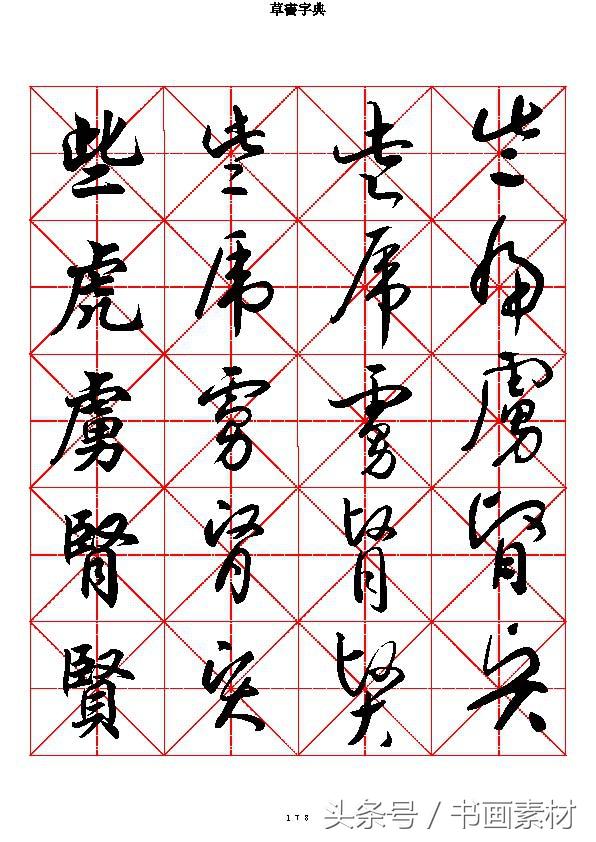 草書字典
些些些些
虎虎虎虎
虜虜虜虜
腎腎腎腎
賢賢賢賢
178
头条号 / 书画素材